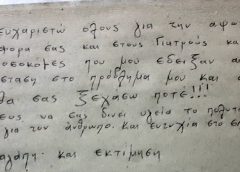 ευχαριστώ όλους για την
φορα σας και στους Γιατρούς κα
που μου έδειξαν
σταση στο πρόβλημα μου και
θα σας ξεχάσω ποτέ!!!
να σας δίνει υγεία το
για τον άνθρωπο. Και ευτυχία στο
αγάπη και εκτίμηση